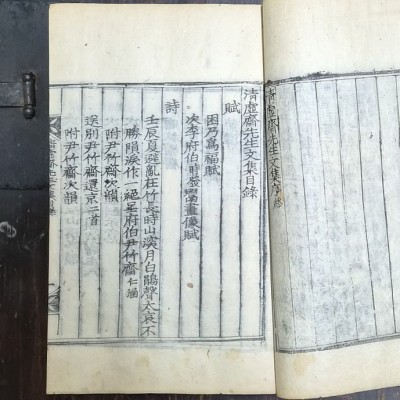 清虛齋先生文集
清虛齋先生文集目錄
賦
困乃爲福賦
次李府伯時發
賦
詩
壬辰夏避亂在竹長時山淡月白鵑聲太哀不
勝隕淚作一絕呈府伯尹竹齋仁涵
附尹竹齋次韻
送別尹竹齋還京二首
附尹竹齋次韻